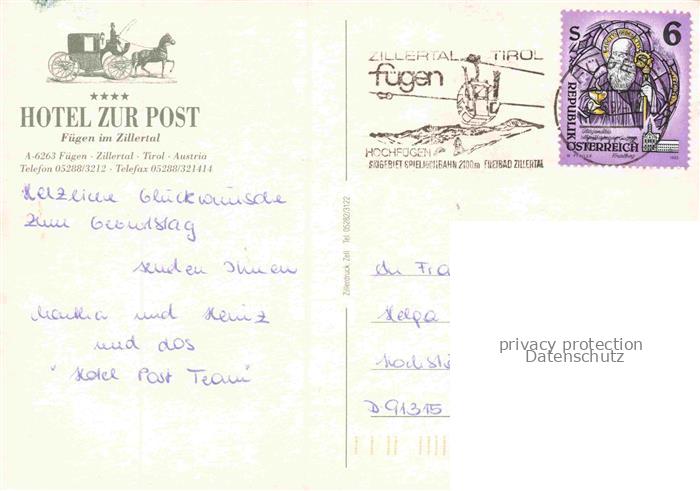 HOTEL ZUR POST
Fügen im Zillertal
A-6263 Fügen · Zillertal · Tirol · Austria
Telefon 05288/3212 · Telefax 05288/321414
Herzliche Glückwünsche
zum Geburtstag
senden Ihnen
Martha und Heinz
und das
"Hotel Post Team"
Zillerdruck, Zell Tel. 05282/3122
ZILLERTAL TIROL
fügen
HOCHFÜGEN
SKIGEBIET SPIELJOCHBAHN 2100m FREIBAD ZILLERTAL
S 6
REPUBLIK
ÖSTERREICH
An Fra
Helga
Höchst
D-91315
privacy protection
Datenschutz